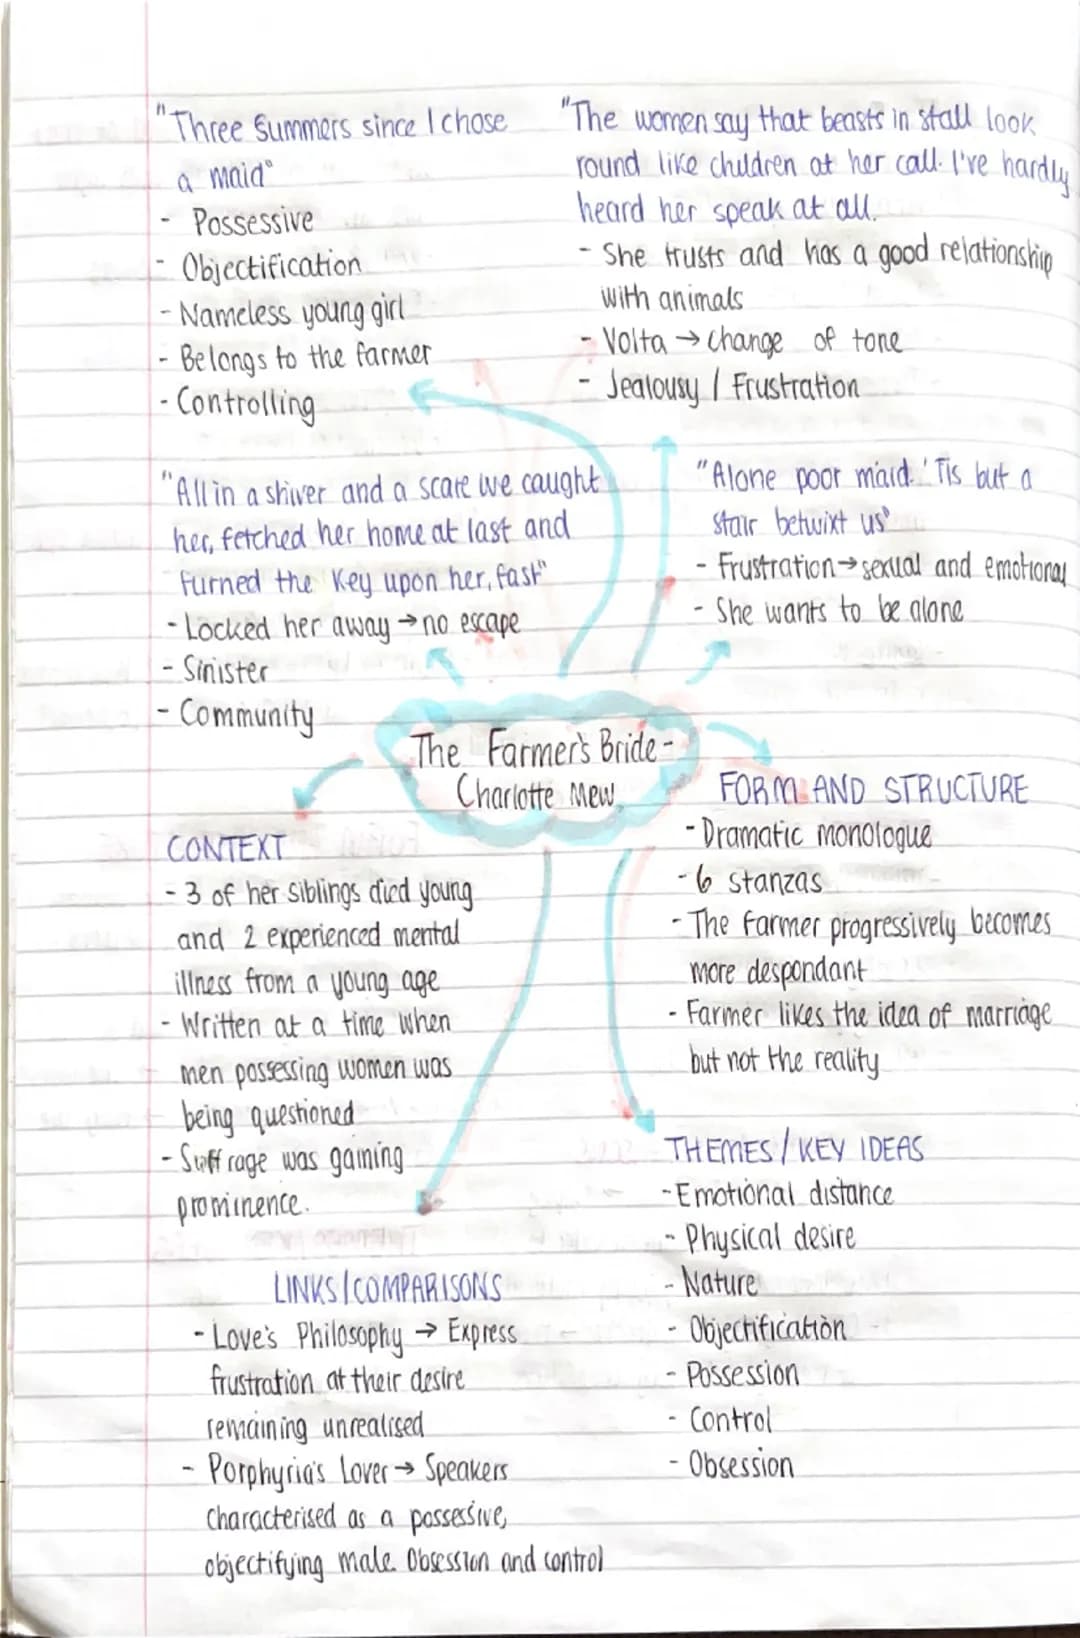 "Three Summers since I chose
a maid"
- Possessive
- Objectification
- Nameless young girl
- Belongs to the farmer
- Controlling
"The women say that beasts in stall look
round like children at her call. I've hardly
heard her speak at all.
- She trusts and has a good relationship
with animals
- Volta → Change of tone
- Jealousy / Frustration
"All in a shiver and a scare we caught
her, fetched her home at last and
turned the Key upon her, fast"
- Locked her away → no escape
- Sinister
- Community
"Alone poor maid. 'Tis but a
stair betwixt us"
- Frustration → sexual and emotional
- She wants to be alone
The Farmer's Bride -
Charlotte Mew
CONTEXT
- 3 of her siblings died young
and 2 experienced mental
illness from a young age
- Written at a time when
men possessing women was
being questioned
- Suffrage was gaining
prominence.
FORM AND STRUCTURE
- Dramatic monologue
- 6 stanzas
- The Farmer progressively becomes
more despondant
- Farmer likes the idea of marriage
but not the reality
LINKS / COMPARISONS
- Love's Philosophy → Express
frustration at their desire
remaining unrealised
- Porphyria's Lover → Speakers
characterised as a possessive,
objectifying male. Obsession and control
THEMES / KEY IDEAS
- Emotional distance
- Physical desire
- Nature
- Objectification
- Possession
- Control
- Obsession